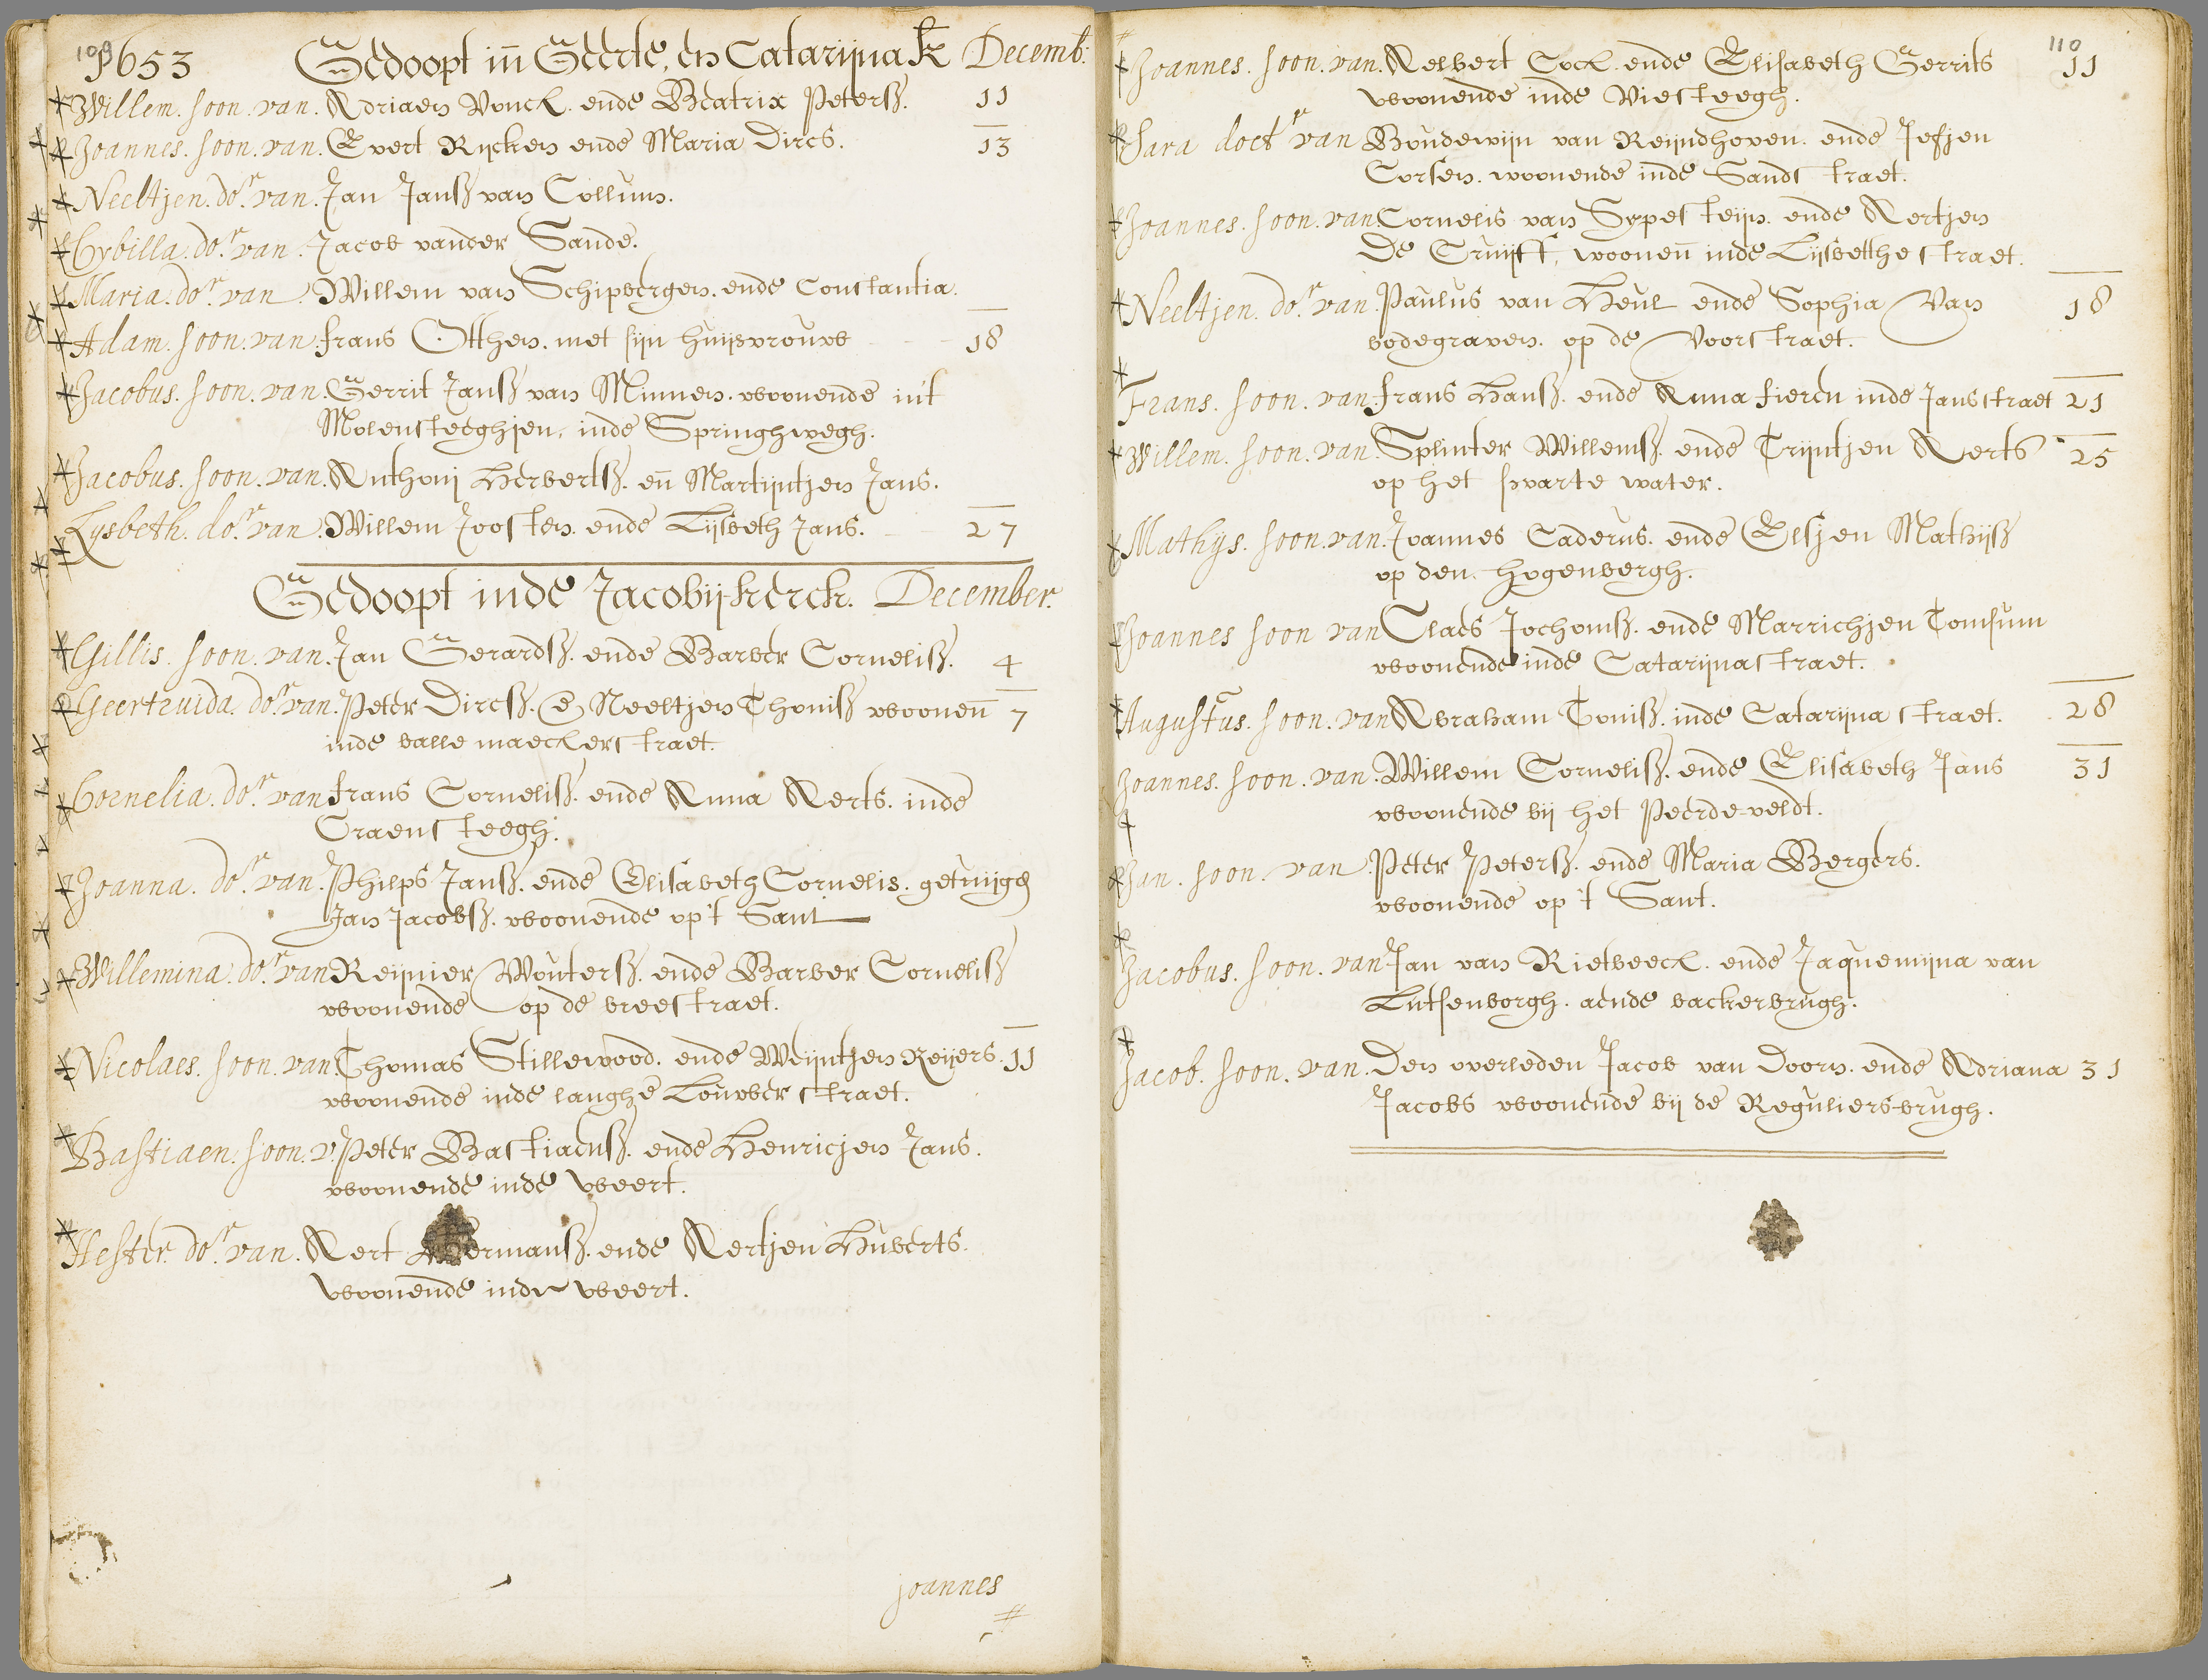 109
1653 Gedoopt iñ Geerte, en Catarijna K Decemb:
Willem. soon. van. Adriaen Vonck. ende Beatrix Peterß. 11
Joannes. soon. van. Evert Rijcken ende Maria Dircs. 13
Neeltjen. do.r van. Jan Janß van Collum.
Cybilla. do.r van. Jacob vander Sande.
Maria. do.r van Willem van Schipbergen. ende Constantia.
Adam. soon. van. frans Otthen. met sijn huijsvrouw 18
Jacobus. soon. van. Gerrit Janß van Minnen. woonende in't
Molensteeghjen, inde Springhwegh.
Jacobus. soon. van. Anthonij Herbertß. eñ Martijntjen Jans.
Lysbeth. do.r van. Willem Joosten. ende Lijsbeth Jans. 27
Gedoopt inde Jacobij-kerck. December.
Gillis. soon. van. Jan Gerardß. ende Barber Cornelisß. 4
Geertruida. do.r van. Peter Dircsß. Neeltjen Thonisß wooneñ 7
inde ballemaeckerstraet.
Cornelia. do.r van frans Cornelisß. ende Anna Aerts. inde
Craensteegh.
Joanna. do.r van. Philps Janß. ende Elisabeth Cornelis. getuijge
Jan Jacobß. woonende op't Sant
Willemina. do.r van Reijnier Wouterß. ende Barber Cornelisß
woonende op de breestraet.
Nicolaes. soon. van. Thomas Stillewood. ende Weijntjen Reijers. 11
woonende inde langhe Louwerstraet.
Bastiaen. soon. v. Peter Bastiaensß. ende Henricjen Jans.
woonende inde weert.
Hester. do.r van. Aert Hermansß. ende Aertjen Huberts.
woonende inde weert.
joannes
#
110
Joannes. soon. van. Aelbert Cock. ende Elisabeth Gerrits 11
woonende inde Viesteegh.
Sara doct.r van Boudewijn van Reijndhoven. ende Jesjen
Corsen. woonende inde Sandstraet.
Joannes. soon. van Cornelis van Sypesteijn. ende Aertjen
De Cruijff, wooneñ inde Lijsbetthestraet.
Neeltjen. do.r van. Paulus van Heul ende Sophia Van 18
bodegraven. op de Voorstraet.
Frans. soon. van. frans Hansß. ende Anna fieren inde Jansstraet 21
Willem. soon. van. Splinter Willemsß. ende Trijntjen Aerts 25
op het swarte water.
Mathijs. soon. van. Joannes Caderus. ende Elsjen Mathijsß
op den. hogenbergh.
Joannes soon van Claes Jochomsß. ende Marrichjen Tomsum
woonende inde Catarijnastraet.
Augustus. soon. van Abraham Tonisß. inde Catarijnastraet. 28
Joannes. soon. van. Willem Cornelisß. ende Elisabeth Jans 31
woonende bij het Peerde-veldt.
Jan. soon. van. Peter Peterß. ende Maria Bergers.
woonende op 't Sant.
Jacobus. soon. van Jan van Rietbeeck. ende Jaquemijna van
Lutsenborgh. aende backerbrugh.
Jacob. soon. van. Den overleden Jacob van Doorn. ende Adriana 31
Jacobs woonende bij de Reguliers-brugh.